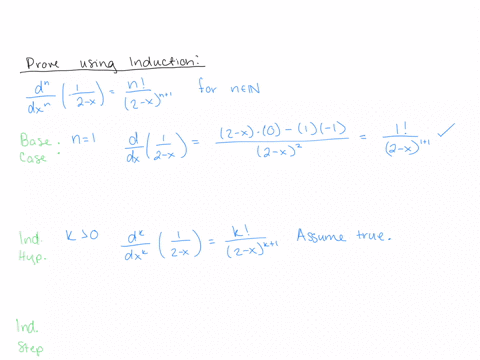 Prove using Induction:
dⁿ/dxⁿ (1/(2-x)) = n!/(2-x)ⁿ⁺¹ for n∈ℕ
Base Case: n=1 d/dx (1/(2-x)) = ((2-x)·(0) - (1)(-1))/(2-x)² = 1!/(2-x)¹⁺¹ ✓
Ind. Hyp. k>0 dᵏ/dxᵏ (1/(2-x)) = k!/(2-x)ᵏ⁺¹ Assume true.
Ind. Step